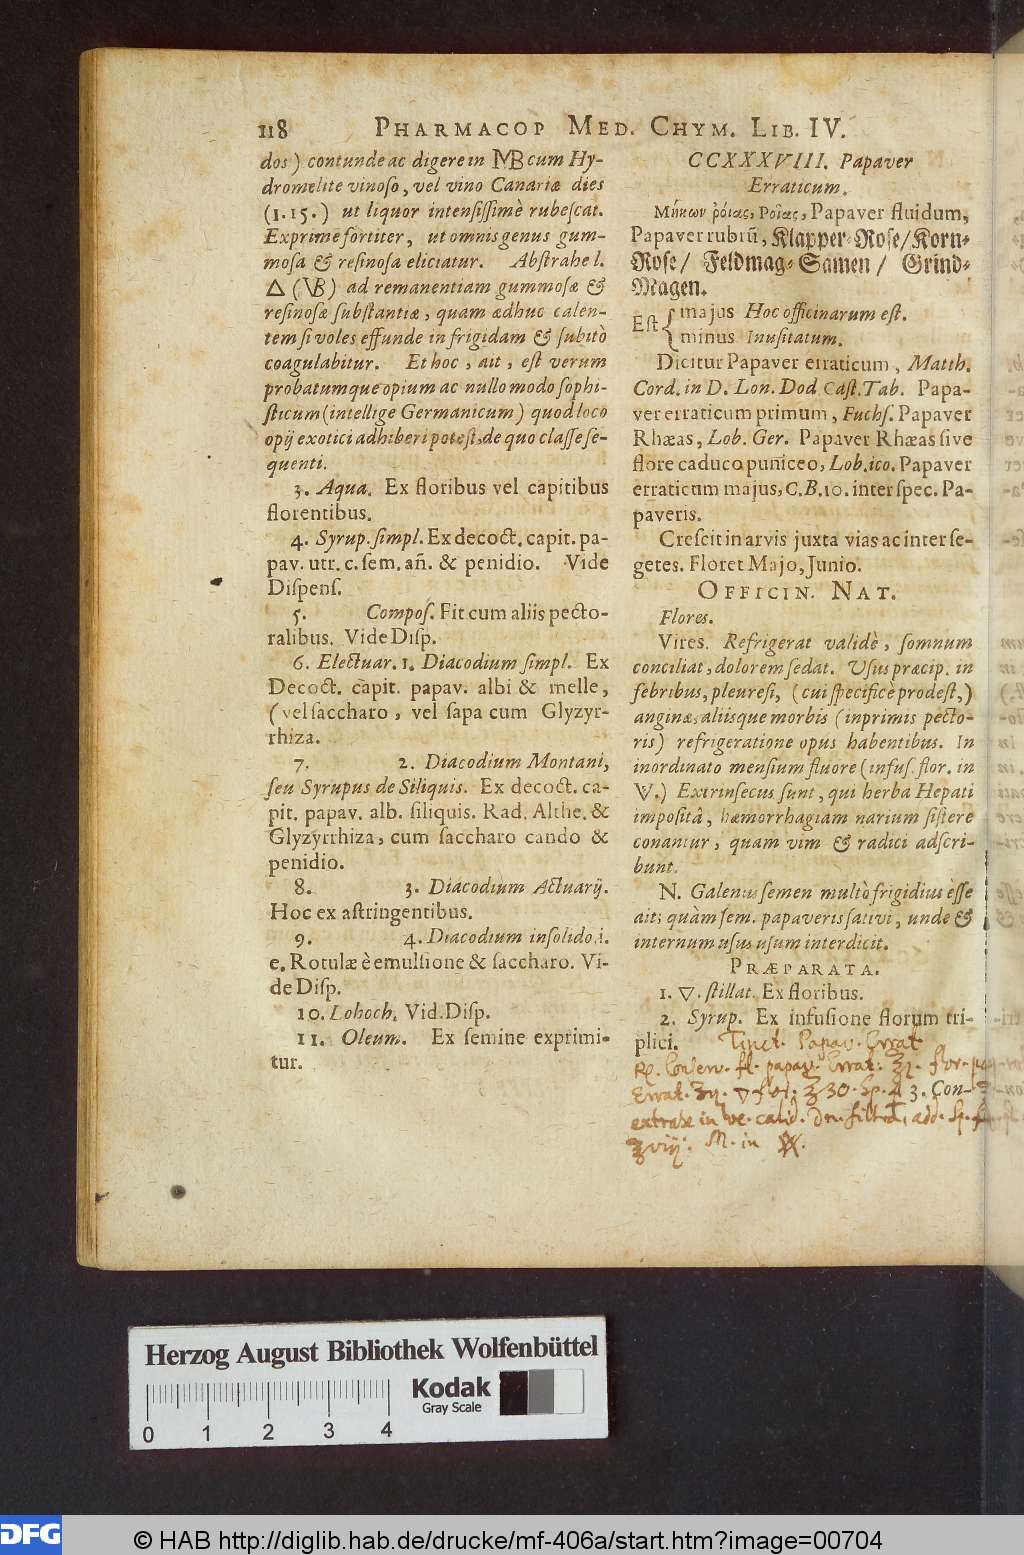 118 PHARMACOP MED. CHYM. LIB. IV.
dos) contunde ac digere in MB cum Hy-
dromelite vinoso, vel vino Canariæ dies
(1.15.) ut liquor intensissimè rubescat.
Exprime fortiter, ut omnis genus gum-
mosa & resinosa eliciatur. Abstrahe l.
🜂 (VB) ad remanentiam gummosæ &
resinosæ substantiæ, quam adhuc calen-
tem si voles effunde in frigidam & subitò
coagulabitur. Et hoc, ait, est verum
probatumque opium ac nullo modo sophi-
sticum (intellige Germanicum) quod loco
opij exotici adhiberi potest, de quo classe se-
quenti.
3. Aqua. Ex floribus vel capitibus
florentibus.
4. Syrup. simpl. Ex decoct. capit. pa-
pav. utr. c. sem. añ. & penidio. Vide
Dispens.
5. Compos. Fit cum aliis pecto-
ralibus. Vide Disp.
6. Electuar. 1. Diacodium simpl. Ex
Decoct. capit. papav. albi & melle,
(vel saccharo, vel sapa cum Glyzyr-
rhiza.
7. 2. Diacodium Montani,
seu Syrupus de Siliquis. Ex decoct. ca-
pit. papav. alb. siliquis. Rad. Althe. &
Glyzyrrhiza, cum saccharo cando &
penidio.
8. 3. Diacodium Actuarij.
Hoc ex astringentibus.
9. 4. Diacodium insolido, i.
e. Rotulæ è emulsione & saccharo. Vi-
de Disp.
10. Lohoch. Vid. Disp.
11. Oleum. Ex semine exprimi-
tur.
CCXXXVIII. Papaver
Erraticum.
Μήκων ῥόιας, Ροῖας, Papaver fluidum,
Papaver rubrū, Klapper-Rose/Korn-
Rose/ Feldmag-Samen/ Grind-
Magen.
Est { majus Hoc officinarum est.
minus Inusitatum.
Dicitur Papaver erraticum, Matth.
Cord. in D. Lon. Dod Cast. Tab. Papa-
ver erraticum primum, Fuchs. Papaver
Rhæas, Lob. Ger. Papaver Rhæas sive
flore caduco puniceo, Lob. ico. Papaver
erraticum majus, C.B. 10. inter spec. Pa-
paveris.
Crescit in arvis juxta vias ac inter se-
getes. Floret Majo, Junio.
OFFICIN. NAT.
Flores.
Vires. Refrigerat validè, somnum
conciliat, dolorem sedat. Usus præcip. in
febribus, pleuresi, (cui specificè prodest,)
anginæ, aliisque morbis (inprimis pecto-
ris) refrigeratione opus habentibus. In
inordinato mensium fluore (infus. flor. in
V.) Extrinsecus sunt, qui herba Hepati
impositâ, hæmorrhagiam narium sistere
conantur, quam vim & radici adscri-
bunt.
N. Galenus semen multò frigidius èsse
ait; quàm sem. papaveris sativi, unde &
internum usus usum interdicit.
PRÆPARATA.
1. 🜄. stillat. Ex floribus.
2. Syrup. Ex infusione florum tri-
plici.
Tinct. Papav. Errat
Rp. Conserv. fl. papav. Errat. ʒ
Errat. ʒ ℥ 30. Sp.
3. Con-
extrahe in calid. filtra, add. sp.
ʒvij. M. in
Herzog August Bibliothek Wolfenbüttel
Kodak
Gray Scale
0 1 2 3 4
DFG
© HAB http://diglib.hab.de/drucke/mf-406a/start.htm?image=00704